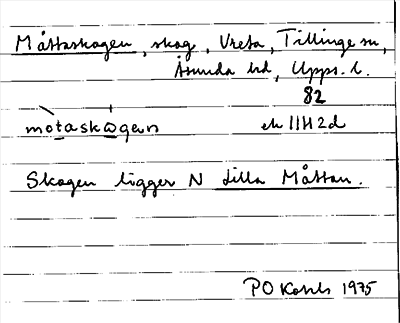 Måttaskogen, skog, Vreta, Tillinge sn,
Åsunda hd, Upps. l.
82
motaskɷgən ek 11H2d
Skogen ligger N Lilla Måttan.
PO 1975